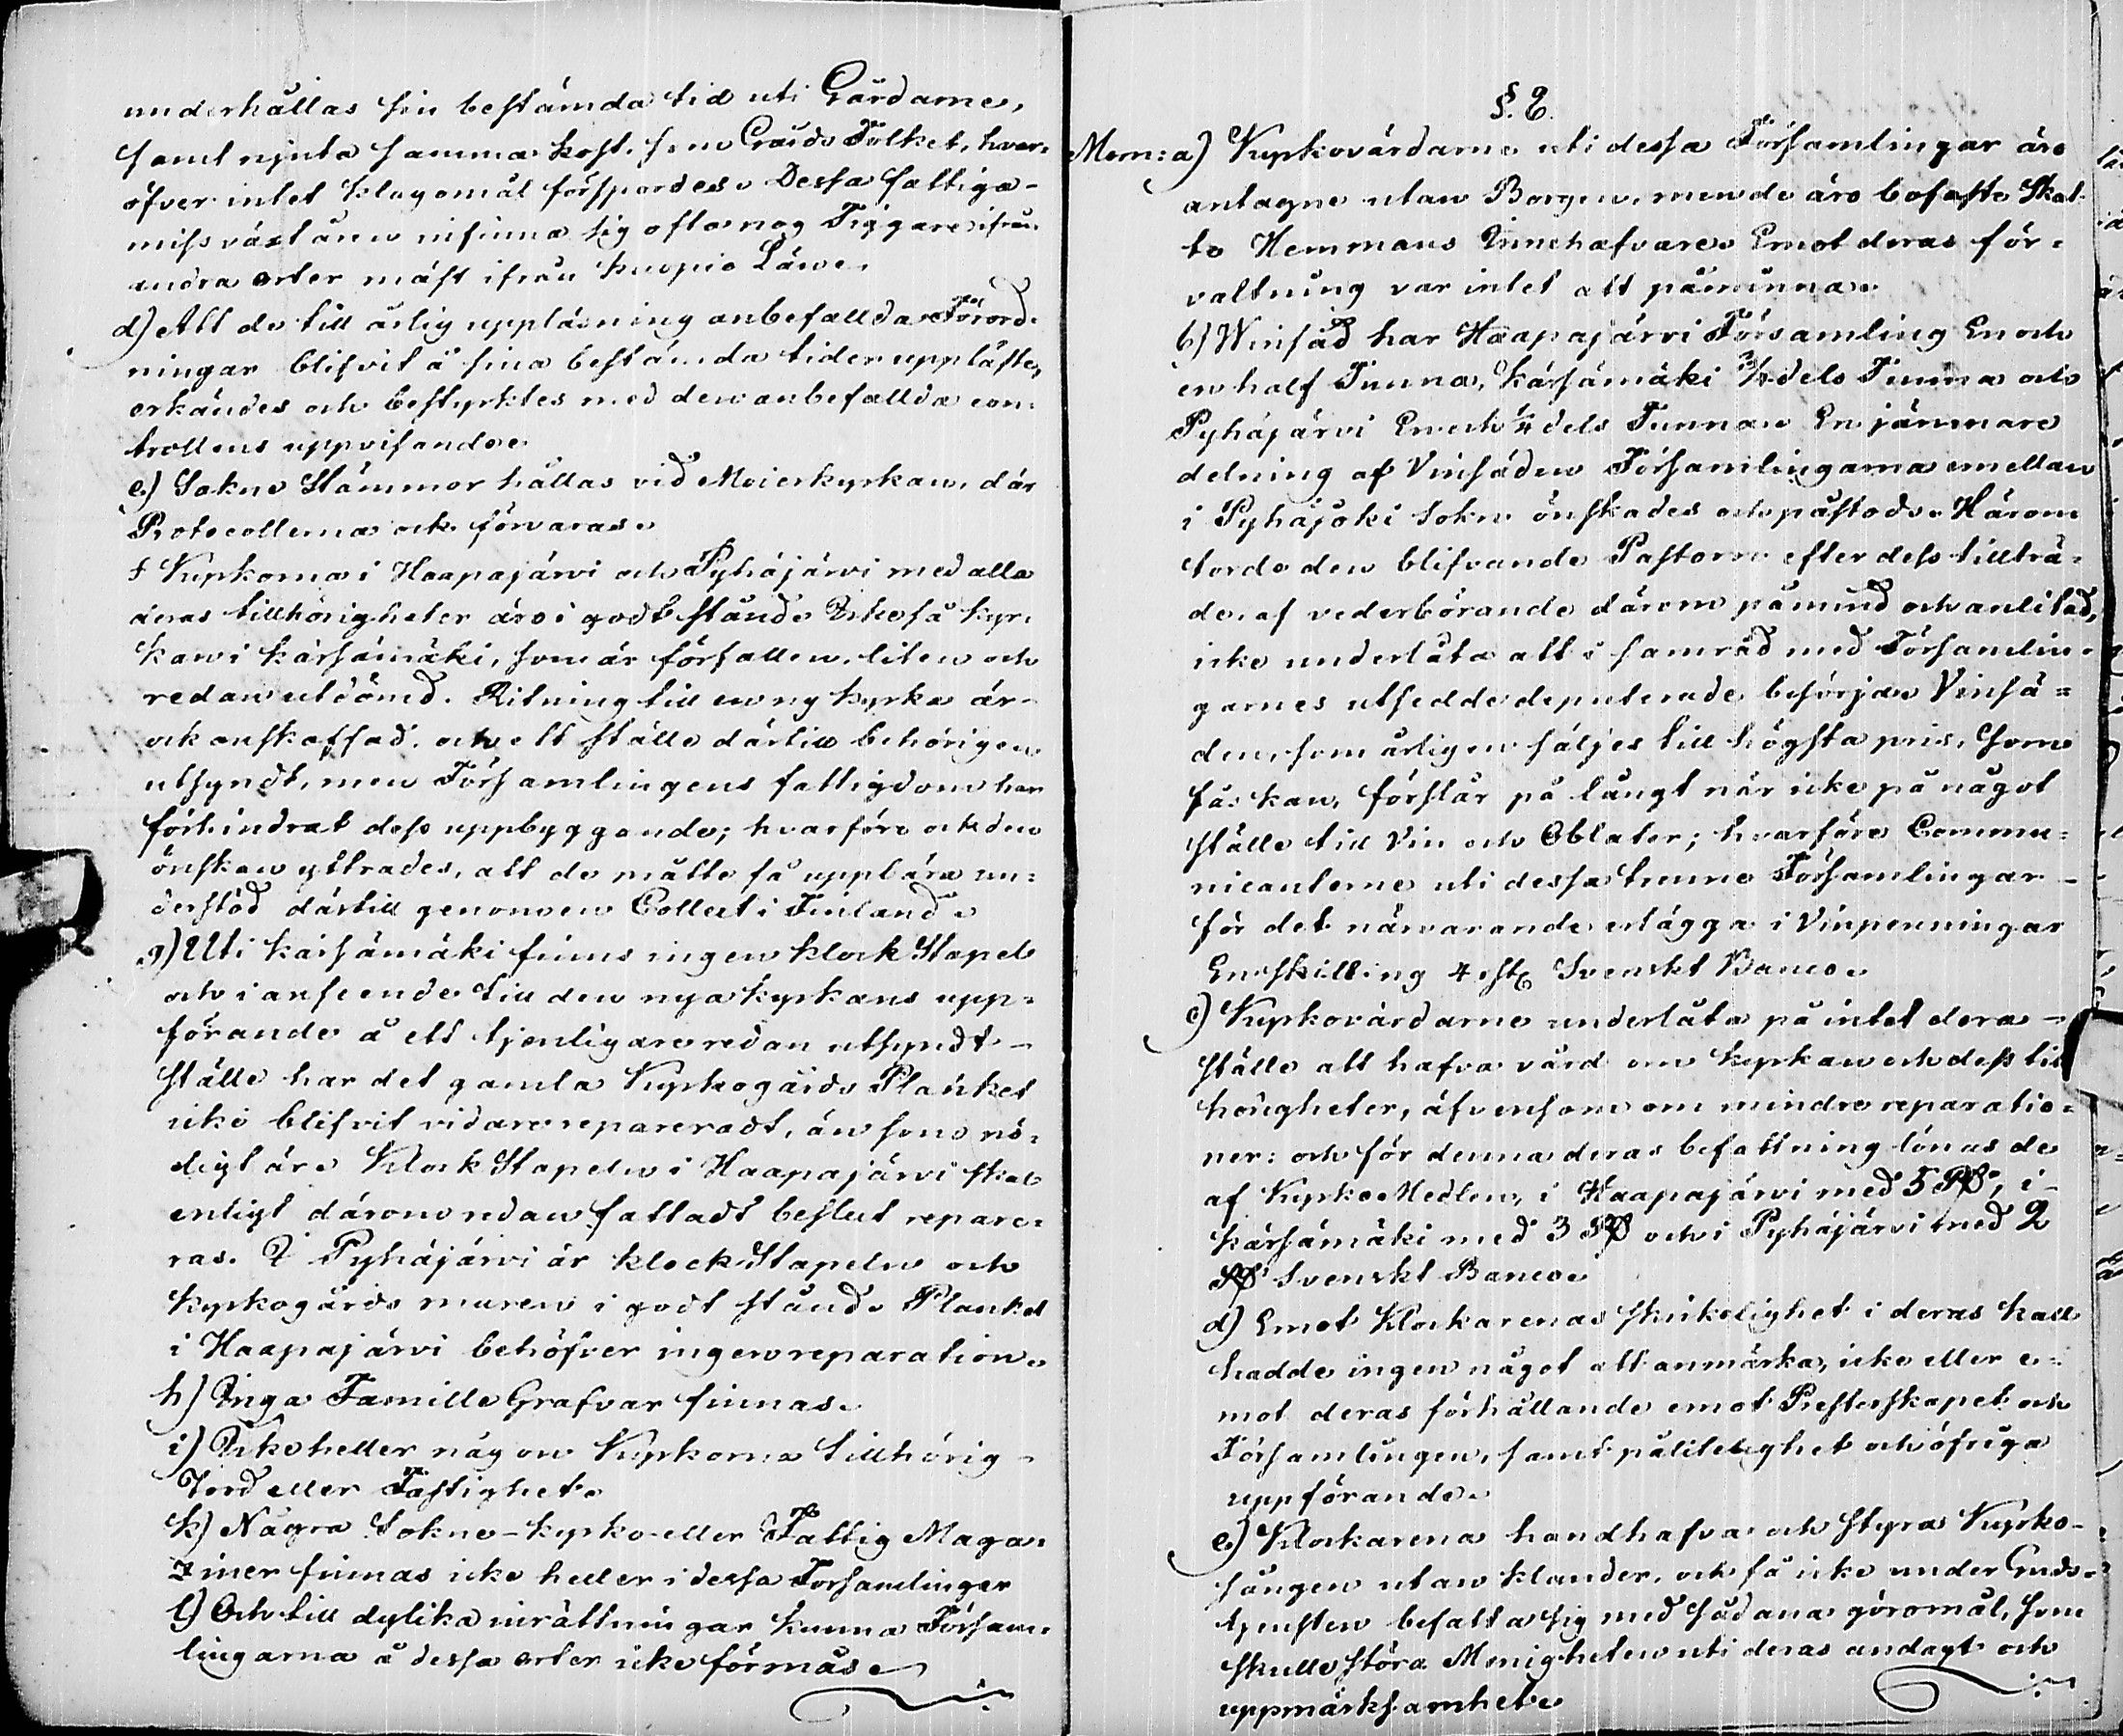 underhållas sin bestämda tid uti Gårdarne,
samt njuta samma kost, som Gårds Folket, hvar-
öfver intet klagomål förspordes. Dessa fattiga
missväxt åren infinna sig ofta nog Tiggare ifrån
andra orter mäst ifrån Kuopio Län.
d) Att de till årlig uppläsning anbefallda Förord-
ningar blifvit å sina bestämda tider uppläste,
erkändes och bestyrktes med den anbefallda con-
trollens uppvisande.
e) Sokne Stämmor hållas vid Moderkyrkan, där
Protocollerna ock förvaras.
f Kyrkorna i Haapajärvi och Pyhäjärvi med alla
deras tillhörigheter äro i godt stånd. Icke så kyr-
kan i Kärsämäki, som är förfallen, liten och
redan utdömd. Ritning till en ny kyrka är
ock anskaffad, och ett ställe därtill behörigen
utsyndt, men Församlingens fattigdom har
förhindrat dess uppbyggande; hvarföre ock den
önskan yttrades, att de måtte få uppbära un-
derstöd därtill genom en Collect i Finland.
g) Uti Kärsämäki finns ingen Klock Stapel
och i anseende till den nya kyrkans upp-
förande å ett tjenligare redan utsyndt
ställe har det gamla Kyrkogårds Planket
icke blifvit vidare repareradt, än som nö-
digt är. Klock Stapeln i Haapajärvi skal
enligt därom redan fattadt beslut repare-
ras. I Pyhäjärvi är klockStapeln och
Kyrkogårds muren i godt stånd. Planket
i Haapajärvi behöfver ingen reparation.
h) Inga Famille Grafvar finnas.
i) Icke heller någon Kyrkorna tillhörig
Jord eller Fastighet.
k) Några Sokne-kyrko- eller Fattig Maga-
ziner finnas icke heller i dessa Forsamlingar
l) Och till dylika inrättningar kunna Försam-
lingarna å dessa orter icke förmås.
§. 8.
Mom: a) Kyrkovärdarne uti dessa Församlingar äro
antagne utan Borgen, men de äro bofaste Skat-
te Hemmans Innehafvare. Emot deras för-
valtning var intet att påminna.
b) Winsäd har Haapajärvi Församling En och
en half Tunna, Kärsämäki 3/4dels Tunna och
Pyhäjärvi En och 1/4dels Tunna. En jämnare
delning af Vinsäden Församlingarna emellan
i Pyhäjoki Sokn önskades och påstods. Härom
torde den blifvande Pastorn efter dess tillträ-
de, af vederbörande därom påmind och anlitad,
icke underlåta att i samråd med Församlin-
garnes utsedde deputerade besörja. Vinsä-
den, som årligen säljes till högsta pris, som
fås kan, förslår på långt när icke på något
ställe till Vin och Oblater; hvarföre Commu-
nicanterne uti dessa trenne Församlingar
för det närvarande erlägga i Vinpenningar
En skilling 4 rst. Svenskt Banco.
c) Kyrkovärdarne underlåta på intet dera
ställe att hafva vård om kyrkan och dess till
hörigheter, äfvensom om mindre reparatio-
ner: och för denna deras befattning lönas de
af Kyrko Medlen, i Haapajärvi med 5 Rd, i
Kärsämäki med 3 Rd och i Pyhäjärvi med 2
Rd Svenskt Banco.
d) Emot Klockarenas skickelighet i deras kall
hadde ingen något att anmärka, icke eller e-
mot deras förhållande emot Presterskapet och
Församlingen, samt pålitelighet och öfriga
uppförande.
e) Klockarena handhafva och styra Kyrko-
sången utan klander, och få icke under Guds-
tjensten befatta sig med sådana göromål, som
skulle störa Menigheten uti deras andagt och
uppmärksamhet.